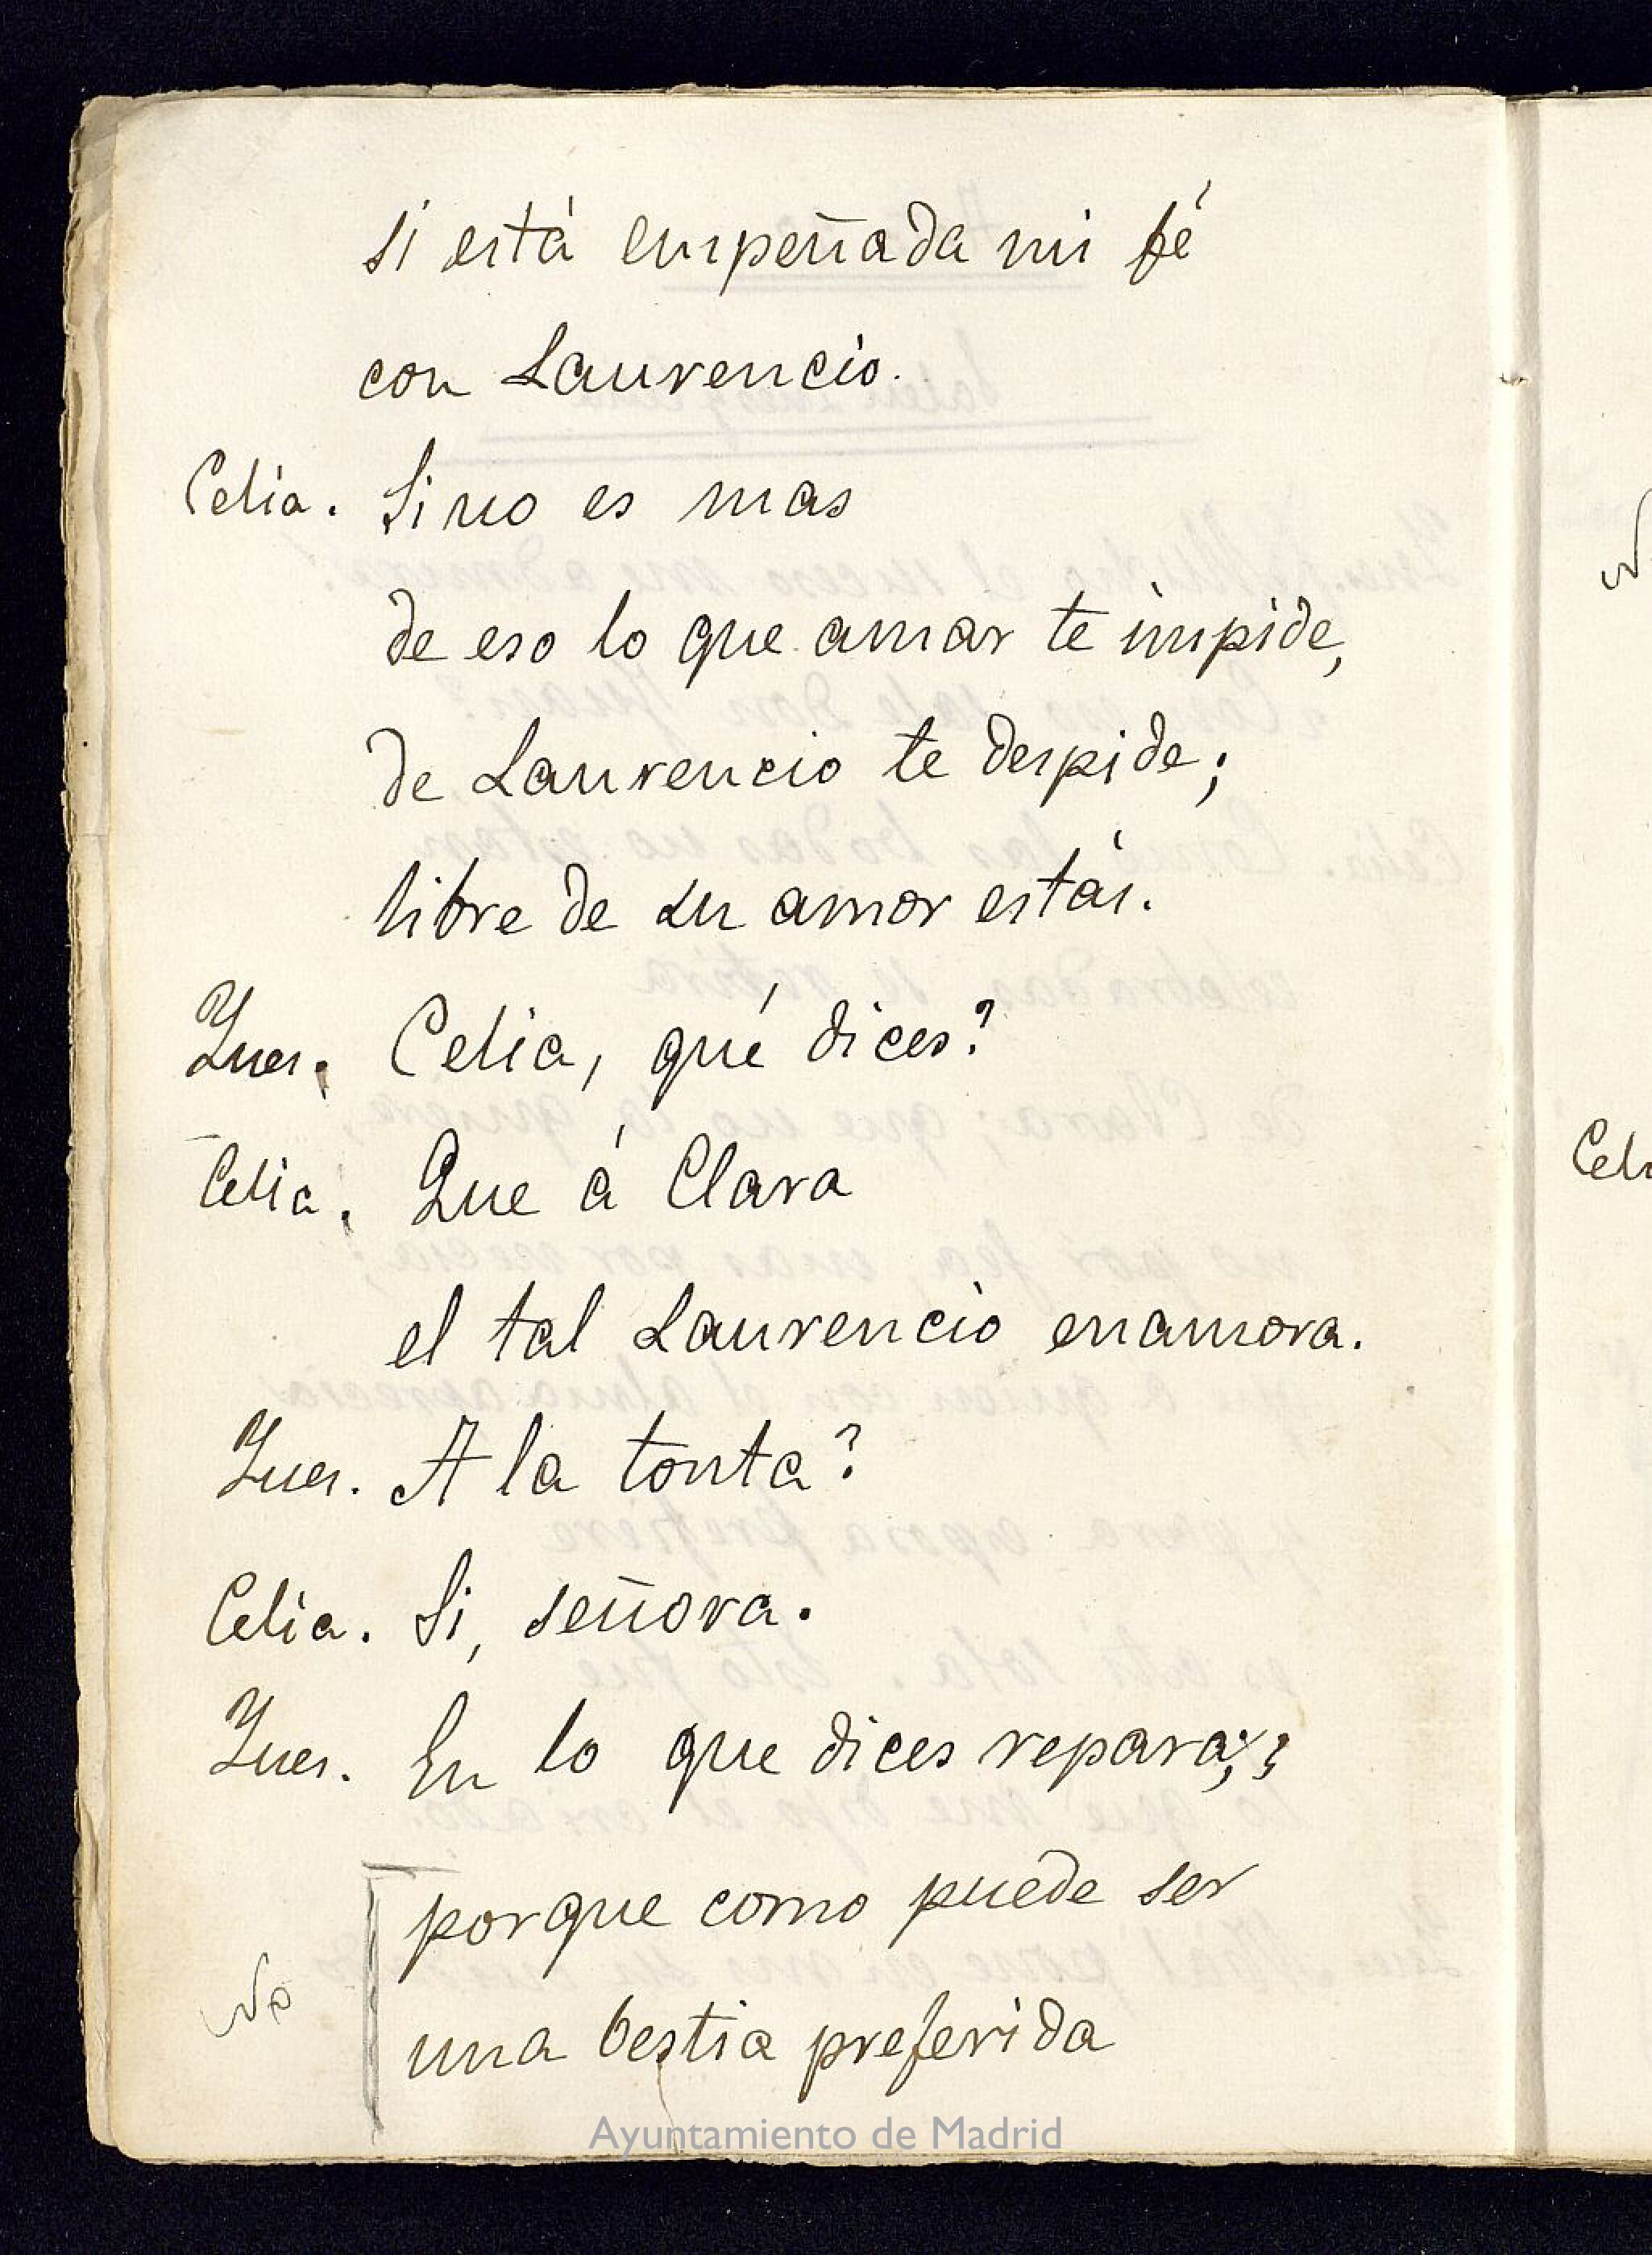 si está empeñada mi fé
con Laurencio.
Celia. Si no es mas
de eso lo que amar te impide,
de Laurencio te despide;
libre de su amor estás.
Ynes. Celia, qué dices?
Celia. Que á Clara
el tal Laurencio enamora.
Ynes. A la tonta?
Celia. Si, señora.
Ynes. En lo que dices repara;
porque como puede ser
No
una bestia preferida
Ayuntamiento de Madrid